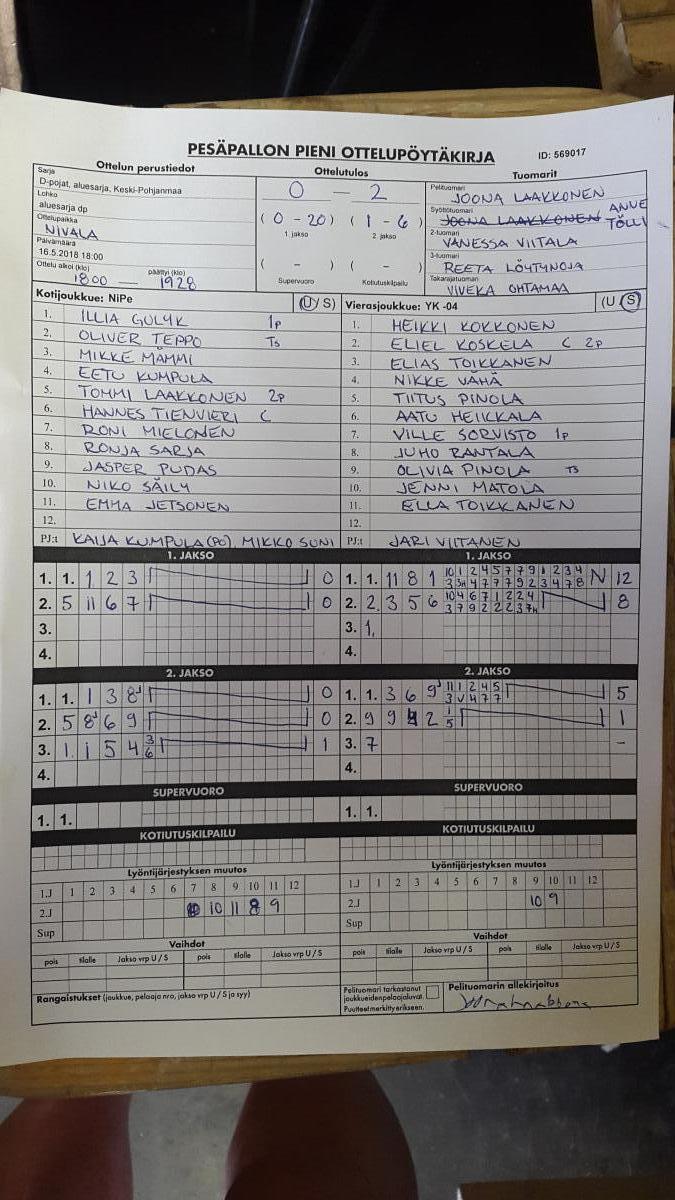 PESÄPALLON PIENI OTTELUPÖYTÄKIRJA ID: 569017
Ottelun perustiedot
Sarja
D-pojat, aluesarja, Keski-Pohjanmaa
Lohko
aluesarja dp
Ottelupaikka
NIVALA
Päivämäärä
16.5.2018 18:00
Ottelu alkoi (klo) päättyi (klo)
1800 — 1928
Ottelutulos
0 — 2
( 0 - 20 ) ( 1 - 6 )
1. jakso 2. jakso
( - ) ( - )
Supervuoro Kotiutuskilpailu
Tuomarit
Pelituomari
JOONA LAAKKONEN
Syöttötuomari
JOONA LAAKKONEN ANVE TÖLLI
2-tuomari
VANESSA VIITALA
3-tuomari
REETA LÖYTYNOJA
Takarajatuomari
VIVEKA OHTAMAA
Kotijoukkue: NiPe (U/S)
1. ILLIA GULYK 1p
2. OLIVER TEPPO TS
3. MIKKE MÄMMI
4. EETU KUMPULA
5. TOMMI LAAKKONEN 2P
6. HANNES TIENVIERI C
7. RONI MIELONEN
8. RONJA SARJA
9. JASPER PUDAS
10. NIKO SÄILY
11. EMMA JETSONEN
12.
PJ:t KAIJA KUMPULA(PO), MIKKO SUNI
Vierasjoukkue: YK -04 (U/S)
1. HEIKKI KOKKONEN
2. ELIEL KOSKELA C 2p
3. ELIAS TOIKKANEN
4. NIKKE VÄHÄ
5. TIITUS PINOLA
6. AATU HEIKKALA
7. VILLE SORVISTO 1p
8. JUHO RANTALA
9. OLIVIA PINOLA TS
10. JENNI MATOLA
11. ELLA TOIKKANEN
12.
PJ:t JARI VIITANEN
1. JAKSO
1. 1. 1 2 3 0
2. 5 11 6 7 0
3.
4.
1. JAKSO
1. 1. 11 8 1 10 1 2 4 5 7 7 9 1 2 3 4 N 12
2. 2. 3 5 6 10 4 6 7 1 2 2 4 8
3. 1.
4.
2. JAKSO
1. 1. 1 3 8 0
2. 5 8 6 9 0
3. 1. 1 5 4 3 6 1
4.
2. JAKSO
1. 1. 3 6 9 11 1 2 4 5 5
3 V 4 7 7
2. 9 9 2 1 5 1
3. 7 -
4.
SUPERVUORO
1. 1.
SUPERVUORO
1. 1.
KOTIUTUSKILPAILU
KOTIUTUSKILPAILU
Lyöntijärjestyksen muutos
1.J 1 2 3 4 5 6 7 8 9 10 11 12
2.J 10 11 8 9
Sup
Lyöntijärjestyksen muutos
1.J 1 2 3 4 5 6 7 8 9 10 11 12
2.J 10 9
Sup
Vaihdot
pois tilalle Jakso vrp U / S pois tilalle Jakso vrp U / S
Vaihdot
pois tilalle Jakso vrp U / S pois tilalle Jakso vrp U / S
Rangaistukset (joukkue, pelaaja nro, jakso vrp U / S ja syy)
Pelituomari tarkastanut
joukkueiden pelaajaluvat.
Puutteet merkitty erikseen.
Pelituomarin allekirjoitus